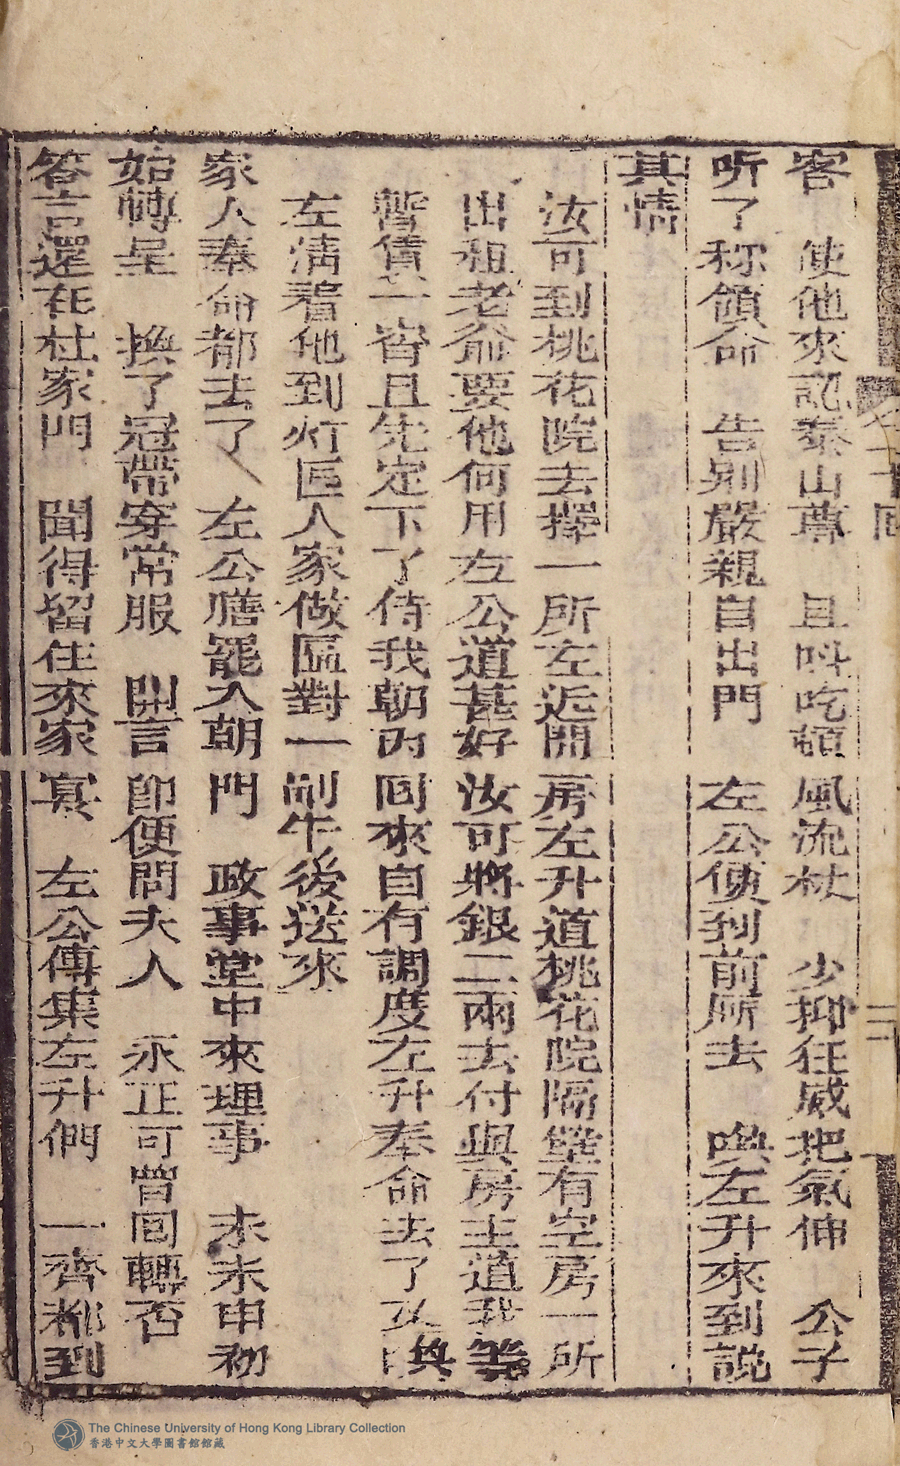 客　使他來認泰山尊　且呌吃頓風流杖　少抑狂威把氣伸　公子
听了称領命　告别嚴親自出門　左公便到前厛去　喚左升來到説
其情
汝可到桃花院去擇一所左近開房左升道桃花院隔壁有空房一所
出租老爺要他何用左公道甚好汝可將銀二兩去付與房主道我等
暫賃一宵且先定下了侍我朝内囘來自有調度左升奉命去了又
左清着他到灯匾人家做匾對一副午後送來
家人奉命都去了　左公膳罷入朝門　政事堂中來理事　未末申初
始轉呈　換了冠帶穿常服　開言即便問夫人　永正可曾囘轉否
答言還在杜家門　聞得留住來家宴　左公傳集左升們　一齊都到
二十囘
三
The Chinese University of Hong Kong Library Collection
香港中文大學圖書館館藏